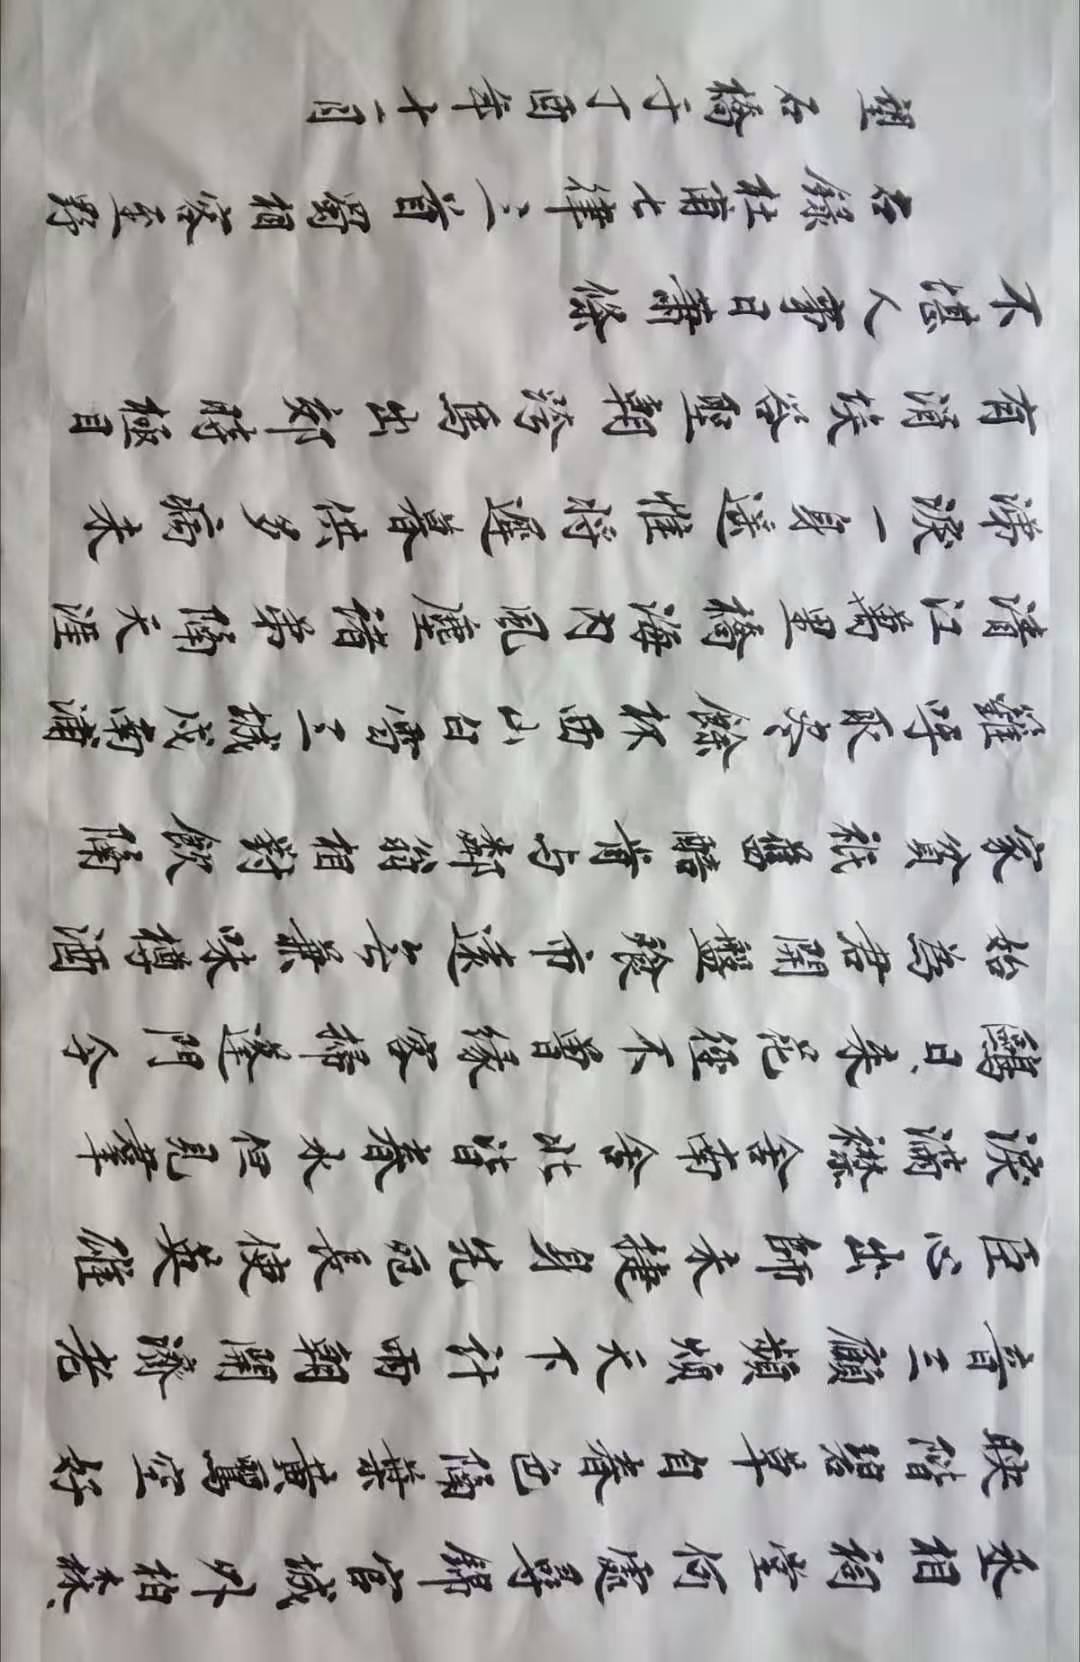 丞相祠堂何處尋錦官城外柏森、
映階碧草自春色隔葉黃鸎空好
音三顧頻煩天下計兩朝開濟老
臣心出師未捷身先死長使英雄
淚滿襟舍南舍北皆春水但見羣
鷗日、来花徑不曾緣客掃蓬門今
始為君開盤飱市遠無兼味樽酒
家貧袛舊醅肯与鄰翁相對飲隔
籬呼取尽餘杯西山白雪三城戍南浦
清江萬里橋海內風塵諸弟隔天涯
涕淚一身遥惟將遲暮供多病未
有涓埃答聖朝跨馬出郊時極目
不堪人事日蕭條
右錄杜甫七律三首蜀相客至野
望石橋于丁酉年十一月